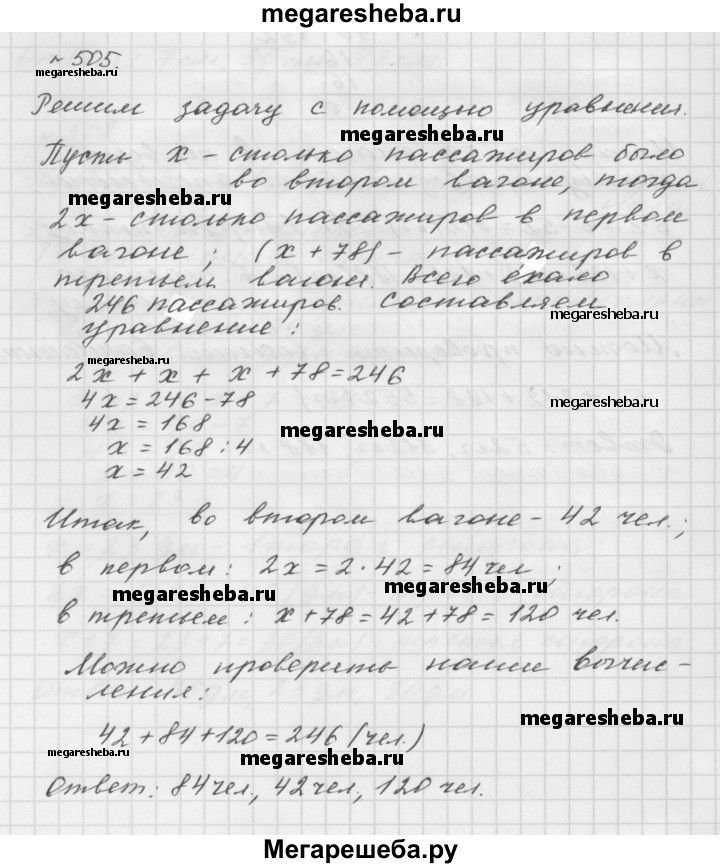 megaresheba.ru
№ 505.
megaresheba.ru
Решим задачу с помощью уравнения.
megaresheba.ru
Пусть х – столько пассажиров было
во втором вагоне, тогда
megaresheba.ru
2х – столько пассажиров в первом
вагоне; (х + 78) – пассажиров в
третьем вагон. Всего ехало
246 пассажиров. Составляем
уравнение:
megaresheba.ru
2х + х + х + 78 = 246
4х = 246 – 78
megaresheba.ru
4х = 168
megaresheba.ru
х = 168 : 4
х = 42
Итак, во втором вагоне – 42 чел.;
в первом: 2х = 2 · 42 = 84 чел;
megaresheba.ru
megaresheba.ru
в третьем: х + 78 = 42 + 78 = 120 чел.
Можно проверить наши вычис –
ления:
megaresheba.ru
42 + 84 + 120 = 246 (чел.)
megaresheba.ru
megaresheba.ru
Ответ: 84 чел, 42 чел, 120 чел.
Мегарешеба.ру